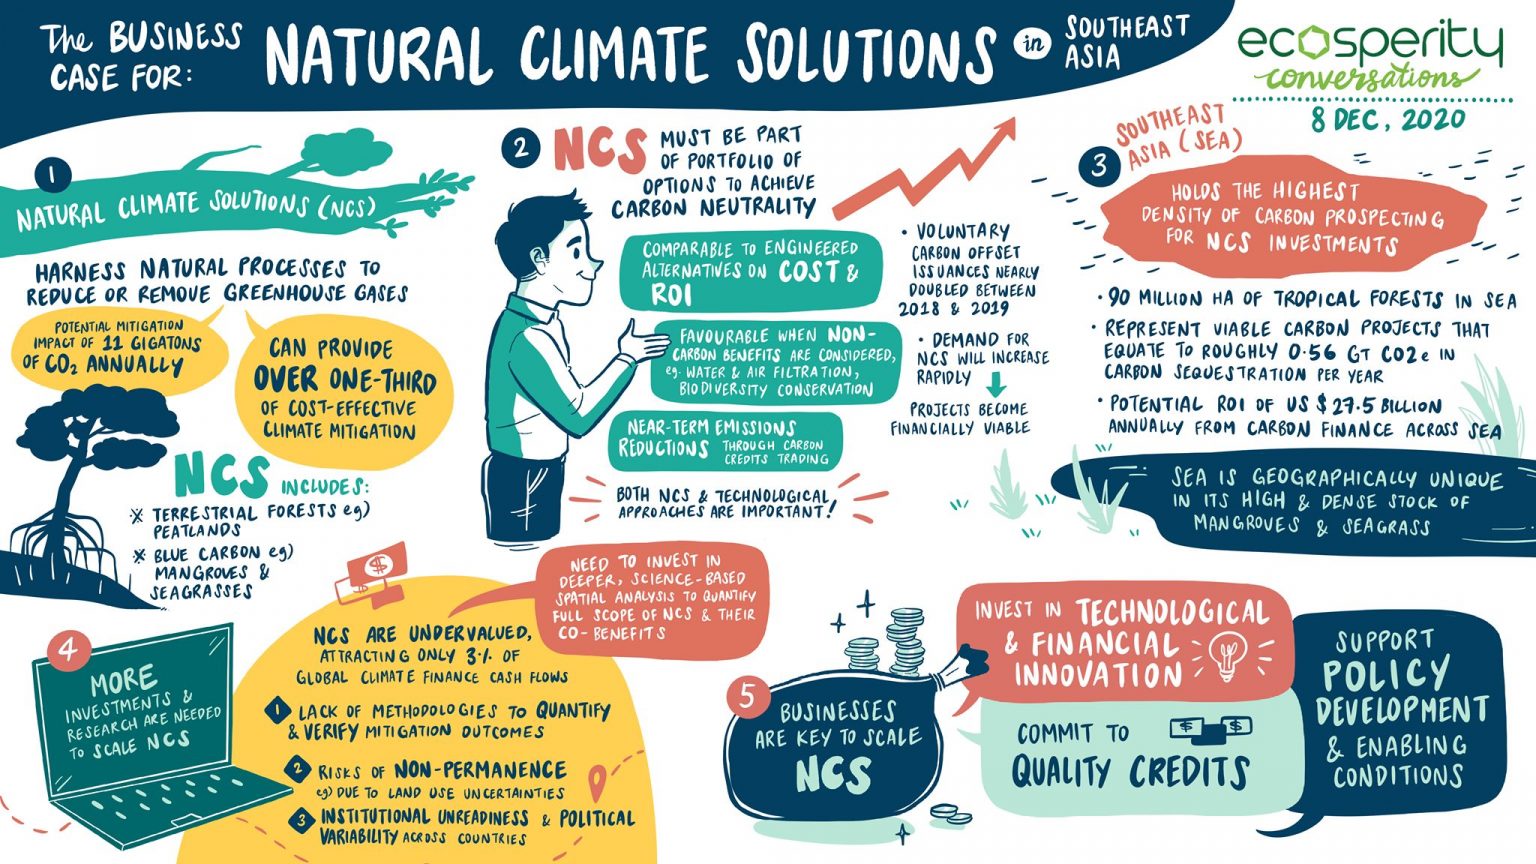 The BUSINESS
CASE FOR:
NATURAL CLIMATE SOLUTIONS
in
SOUTHEAST
ASIA
ecosperity
conversations
8 DEC, 2020
1
NATURAL CLIMATE SOLUTIONS (NCS)
HARNESS NATURAL PROCESSES TO
REDUCE OR REMOVE GREENHOUSE GASES
POTENTIAL MITIGATION
IMPACT OF 11 GIGATONS
OF CO2 ANNUALLY
CAN PROVIDE
OVER ONE-THIRD
OF COST-EFFECTIVE
CLIMATE MITIGATION
NCS INCLUDES:
※ TERRESTRIAL FORESTS eg)
PEATLANDS
※ BLUE CARBON eg)
MANGROVES &
SEAGRASSES
2
NCS MUST BE PART
OF PORTFOLIO OF
OPTIONS TO ACHIEVE
CARBON NEUTRALITY
COMPARABLE TO ENGINEERED
ALTERNATIVES ON COST &
ROI
FAVOURABLE WHEN NON-
CARBON BENEFITS ARE CONSIDERED,
eg. WATER & AIR FILTRATION,
BIODIVERSITY CONSERVATION
NEAR-TERM EMISSIONS
REDUCTIONS THROUGH CARBON
CREDITS TRADING
BOTH NCS & TECHNOLOGICAL
APPROACHES ARE IMPORTANT!
• VOLUNTARY
CARBON OFFSET
ISSUANCES NEARLY
DOUBLED BETWEEN
2018 & 2019
• DEMAND FOR
NCS WILL INCREASE
RAPIDLY
PROJECTS BECOME
FINANCIALLY VIABLE
3
SOUTHEAST
ASIA (SEA)
HOLDS THE HIGHEST
DENSITY OF CARBON PROSPECTING
FOR NCS INVESTMENTS
• 90 MILLION HA OF TROPICAL FORESTS IN SEA
• REPRESENT VIABLE CARBON PROJECTS THAT
EQUATE TO ROUGHLY 0.56 GT CO2e IN
CARBON SEQUESTRATION PER YEAR
• POTENTIAL ROI OF US $27.5 BILLION
ANNUALLY FROM CARBON FINANCE ACROSS SEA
SEA IS GEOGRAPHICALLY UNIQUE
IN ITS HIGH & DENSE STOCK OF
MANGROVES & SEAGRASS
4
MORE
INVESTMENTS &
RESEARCH ARE NEEDED
TO SCALE NCS
$
NEED TO INVEST IN
DEEPER, SCIENCE-BASED
SPATIAL ANALYSIS TO QUANTIFY
FULL SCOPE OF NCS & THEIR
CO-BENEFITS
NCS ARE UNDERVALUED,
ATTRACTING ONLY 3% OF
GLOBAL CLIMATE FINANCE CASH FLOWS
1 LACK OF METHODOLOGIES TO QUANTIFY
& VERIFY MITIGATION OUTCOMES
2 RISKS OF NON-PERMANENCE
eg) DUE TO LAND USE UNCERTAINTIES
3 INSTITUTIONAL UNREADINESS & POLITICAL
VARIABILITY ACROSS COUNTRIES
5
BUSINESSES
ARE KEY TO SCALE
NCS
INVEST IN TECHNOLOGICAL
& FINANCIAL
INNOVATION
COMMIT TO
$ $
QUALITY CREDITS
SUPPORT
POLICY
DEVELOPMENT
& ENABLING
CONDITIONS